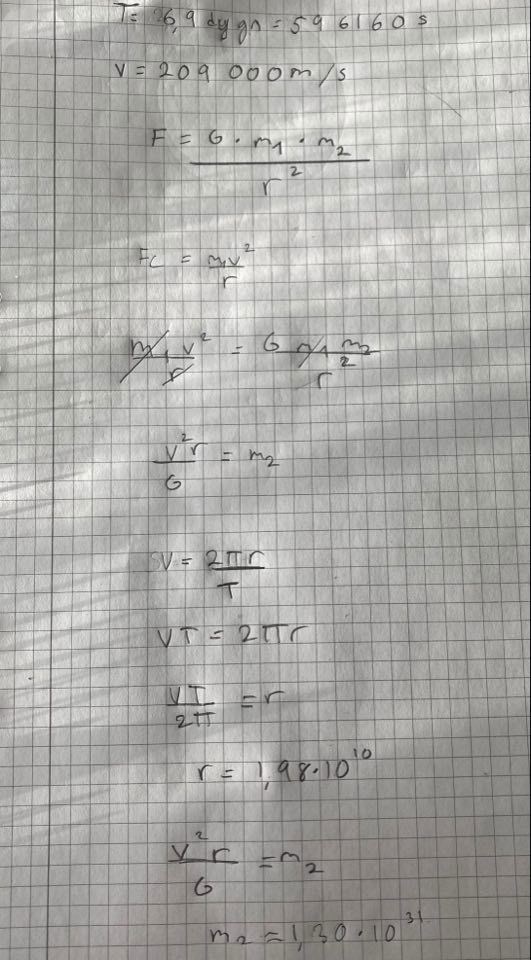 T= 6,9 dygn = 596160 s
V = 209 000 m/s
F = G · m₁ · m₂ / r²
Fc = m₁v² / r
m₁v² / r = G m₁ m₂ / r²
v²r / G = m₂
V = 2πr / T
VT = 2πr
VT / 2π = r
r = 1,98·10¹⁰
v²r / G = m₂
m₂ = 1,30·10³¹